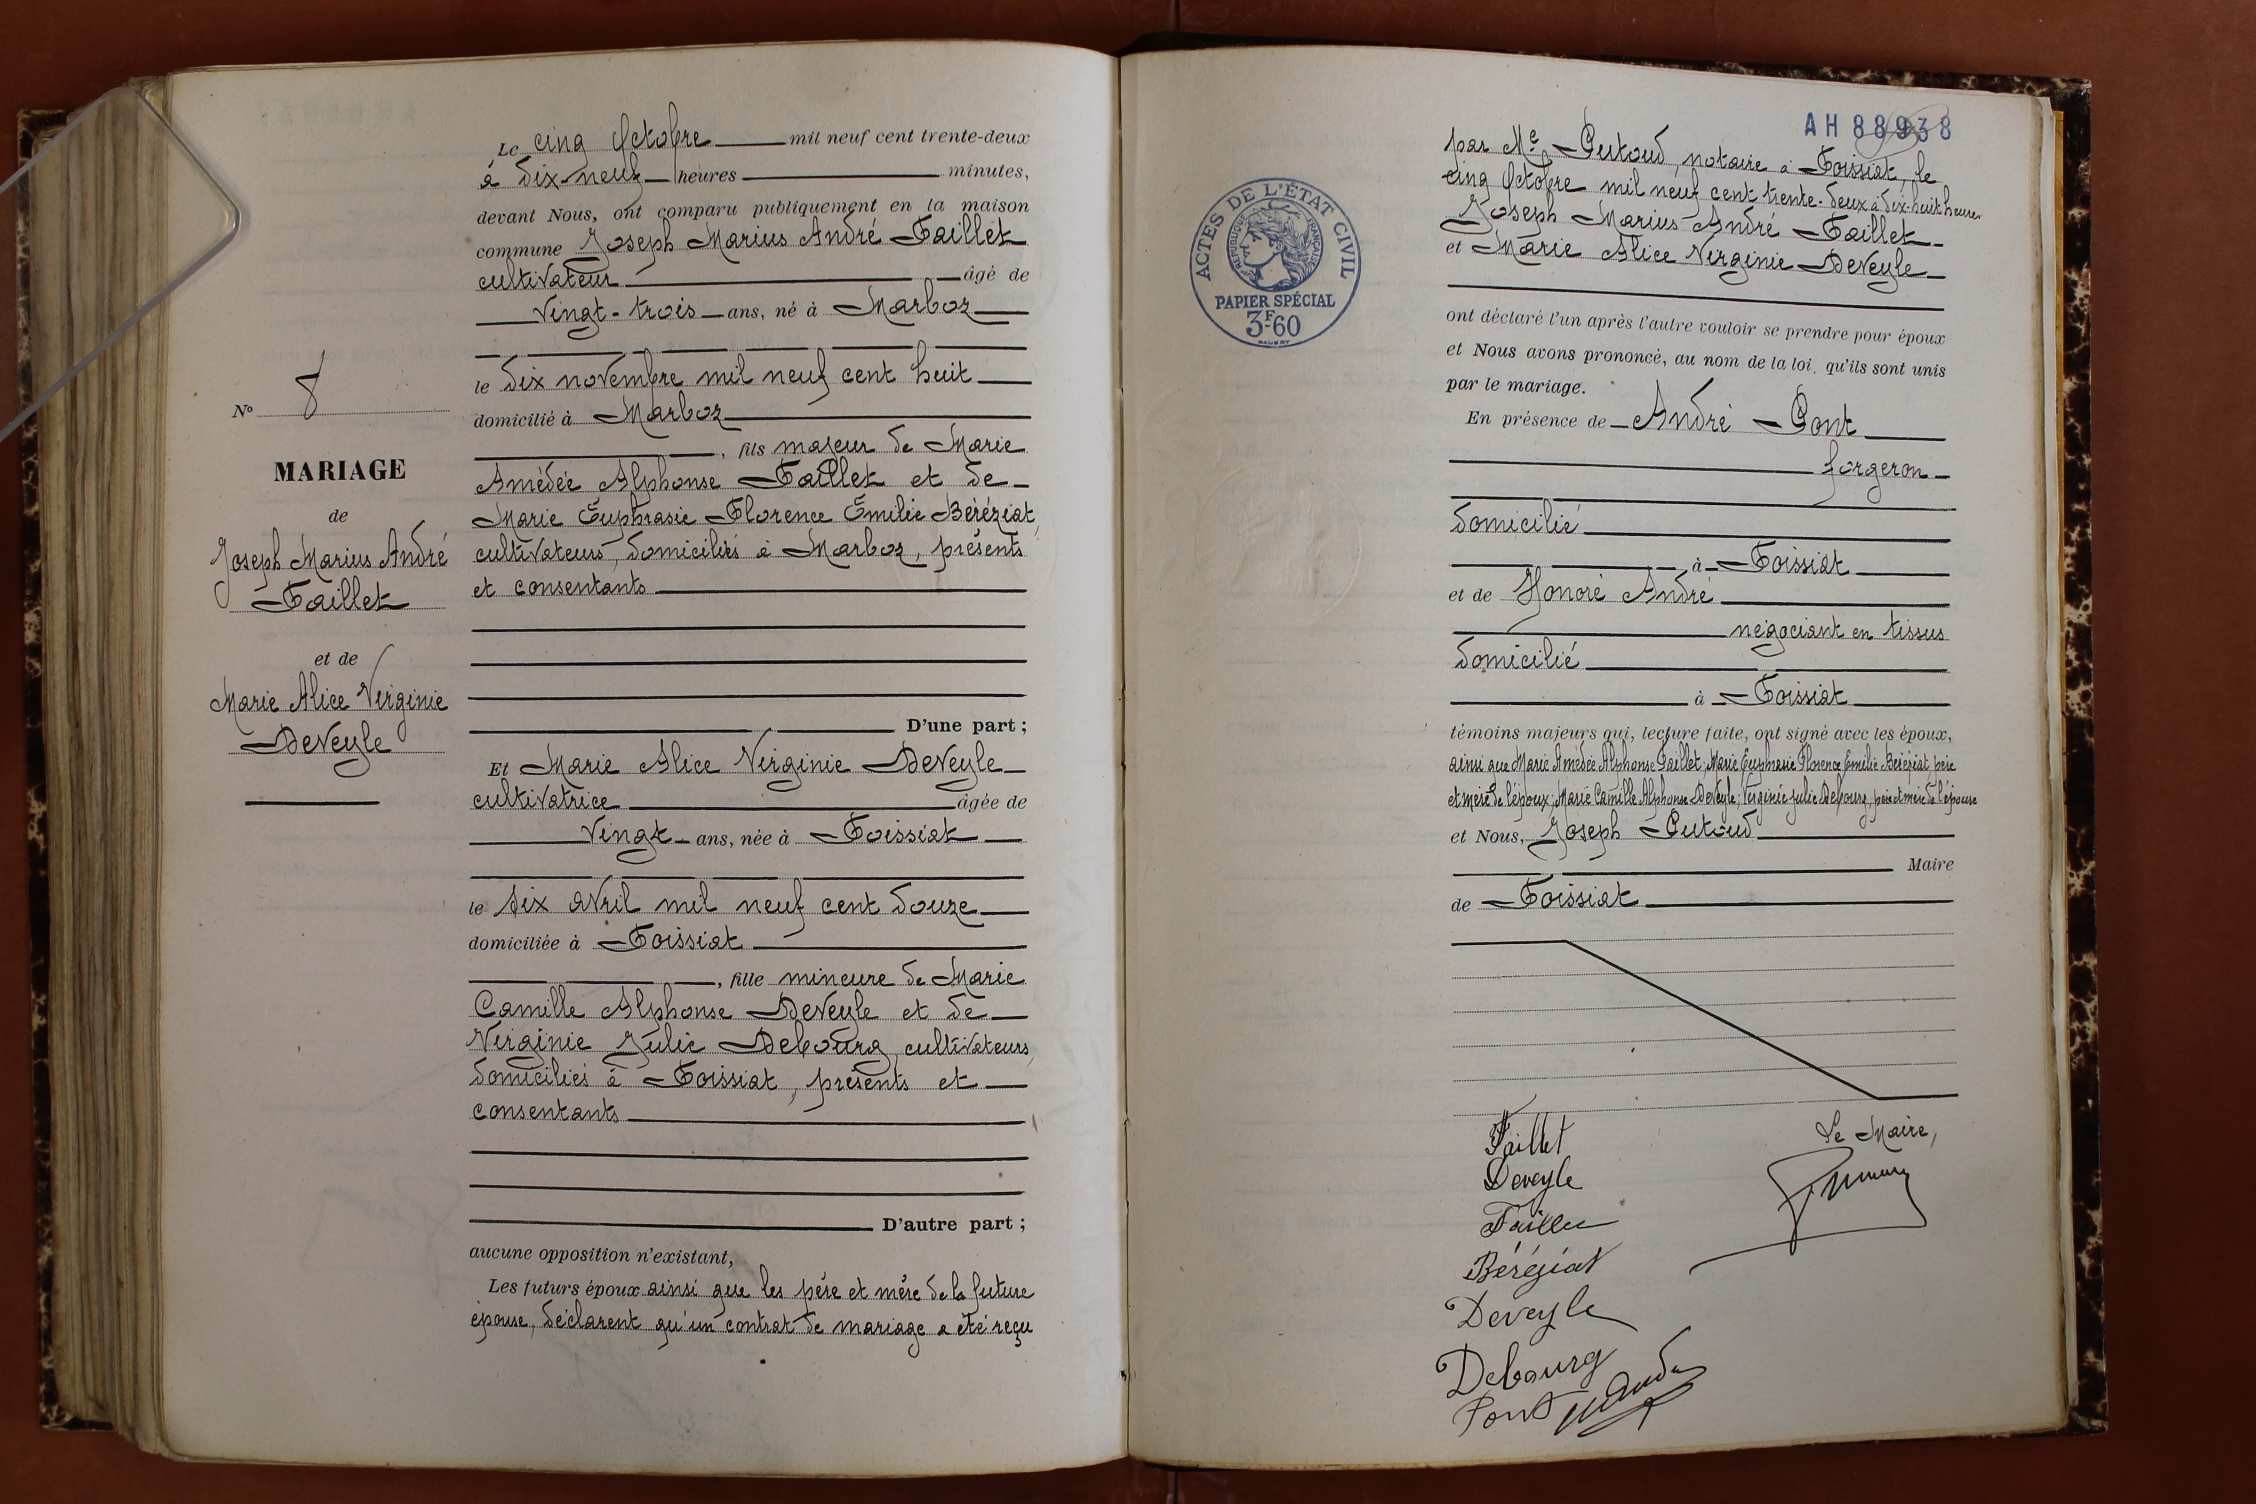 N° 8
MARIAGE
de
Joseph Marius André
Faillet
et de
Marie Alice Virginie
Deveyle
Le cinq Octobre mil neuf cent trente-deux
à dix-neuf heures minutes,
devant Nous, ont comparu publiquement en la maison
commune Joseph Marius André Faillet
cultivateur âgé de
vingt-trois ans, né à Marboz
le dix novembre mil neuf cent huit
domicilié à Marboz
, fils majeur de Marie
Amédée Alphonse Faillet et de
Marie Euphrasie Florence Emilie Béréziat,
cultivateurs, domiciliés à Marboz, présents
et consentants
D'une part ;
Et Marie Alice Virginie Deveyle
cultivatrice âgée de
vingt ans, née à Foissiat
le six avril mil neuf cent douze
domiciliée à Foissiat
, fille mineure de Marie
Camille Alphonse Deveyle et de
Virginie Julie Debourg, cultivateurs,
domiciliés à Foissiat, présents et
consentants
D'autre part ;
aucune opposition n'existant,
Les futurs époux ainsi que les père et mère de la future
épouse, déclarent qu'un contrat de mariage a été reçu
AH 88938
ACTES DE L'ÉTAT CIVIL
RÉPUBLIQUE FRANÇAISE
PAPIER SPÉCIAL
3F60
par Me Putoud, notaire à Foissiat, le
cinq Octobre mil neuf cent trente-deux à dix-huit heures
Joseph Marius André Faillet
et Marie Alice Virginie Deveyle
ont déclaré l'un après l'autre vouloir se prendre pour époux
et Nous avons prononcé, au nom de la loi, qu'ils sont unis
par le mariage.
En présence de André Pont
forgeron
domicilié
à Foissiat
et de Honoré André
négociant en tissus
domicilié
à Foissiat
témoins majeurs qui, lecture faite, ont signé avec les époux,
ainsi que Marie Amédée Alphonse Faillet, Marie Euphrasie Florence Emilie Béréziat, père
et mère de l'époux, Marie Camille Alphonse Deveyle, Virginie Julie Debourg, père et mère de l'épouse
et Nous, Joseph Putoud
Maire
de Foissiat
Le Maire,
Faillet
Deveyle
Faillet
Béréziat
Deveyle
Debourg
Pont